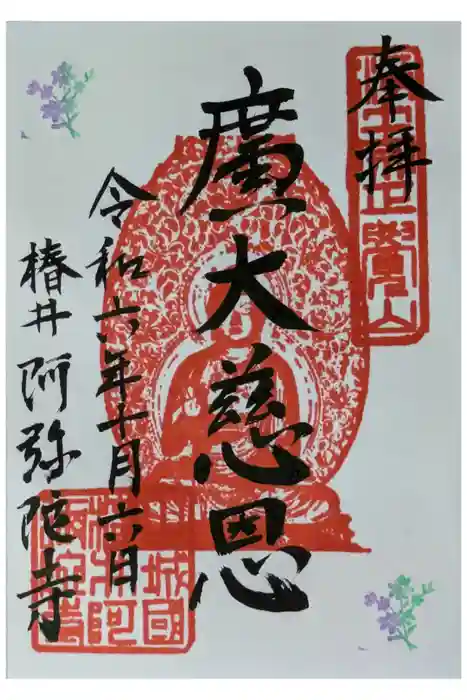 奉拝
廣大慈恩
令和六年十月六日
椿井阿弥陀寺